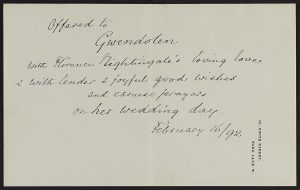 Offered to
Gwendolen
with Florence Nightingale's loving love
& with tender & joyful good wishes
and earnest prayers
on her wedding day.
February 16/92.
10, SOUTH STREET,
PARK LANE. W.